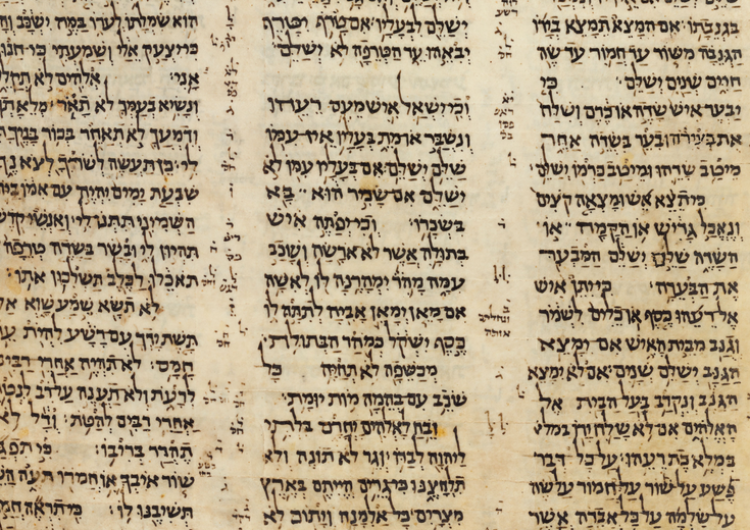 בגנבתו אם המצא תמצא בידו
הגנבה משור עד חמור עד שה
חיים שנים ישלם כי
יבער איש שדה או כרם ושלח
את בעירה ובער בשדה אחר
מיטב שדהו ומיטב כרמו ישלם
כי תצא אש ומצאה קצים
ונאכל גדיש או הקמה או
השדה שלם ישלם המבער
את הבערה כי יתן איש
אל רעהו כסף או כלים לשמר
וגנב מבית האיש אם ימצא
הגנב ישלם שנים אם לא ימצא
הגנב ונקרב בעל הבית אל
האלהים אם לא שלח ידו במלא
במלאכת רעהו על כל דבר
פשע על שור על חמור על שה
על שלמה על כל אבדה אשר
ישלם לבעליו אם טרף יטרף
יבאהו עד הטרפה לא ישלם
וכי ישאל איש מעם רעהו
ונשבר או מת בעליו אין עמו
שלם ישלם אם בעליו עמו לא
ישלם אם שכיר הוא בא
בשכרו וכי יפתה איש
בתולה אשר לא ארשה ושכב
עמה מהר ימהרנה לו לאשה
אם מאן ימאן אביה לתתה לו
כסף ישקל כמהר הבתולת
מכשפה לא תחיה כל
שכב עם בהמה מות יומת
זבח לאלהים יחרם בלתי
ליהוה לבדו וגר לא תונה ולא
תלחצנו כי גרים הייתם בארץ
מצרים כל אלמנה ויתום לא
הוא שמלתו לערו במה ישכב
כי יצעק אלי ושמעתי כי חנון
אני אלהים לא תקלל
ונשיא בעמך לא תאר
ודמעך לא תאחר בכור בניך
לי כן תעשה לשרך לצאנך
שבעת ימים יהיה עם אמו
השמיני תתנו לי ואנשי קדש
תהיון לי ובשר בשדה טרפה
תאכלו לכלב תשלכון אתו
לא תשא שמע שוא אל
תשת ידך עם רשע להית
חמס לא תהיה אחרי רבים
לרעת ולא תענה על רב לנטת
אחרי רבים להטת ודל לא
תהדר בריבו כי תפגע
שור איבך או חמרו תעה
תשיבנו לו כי תראה